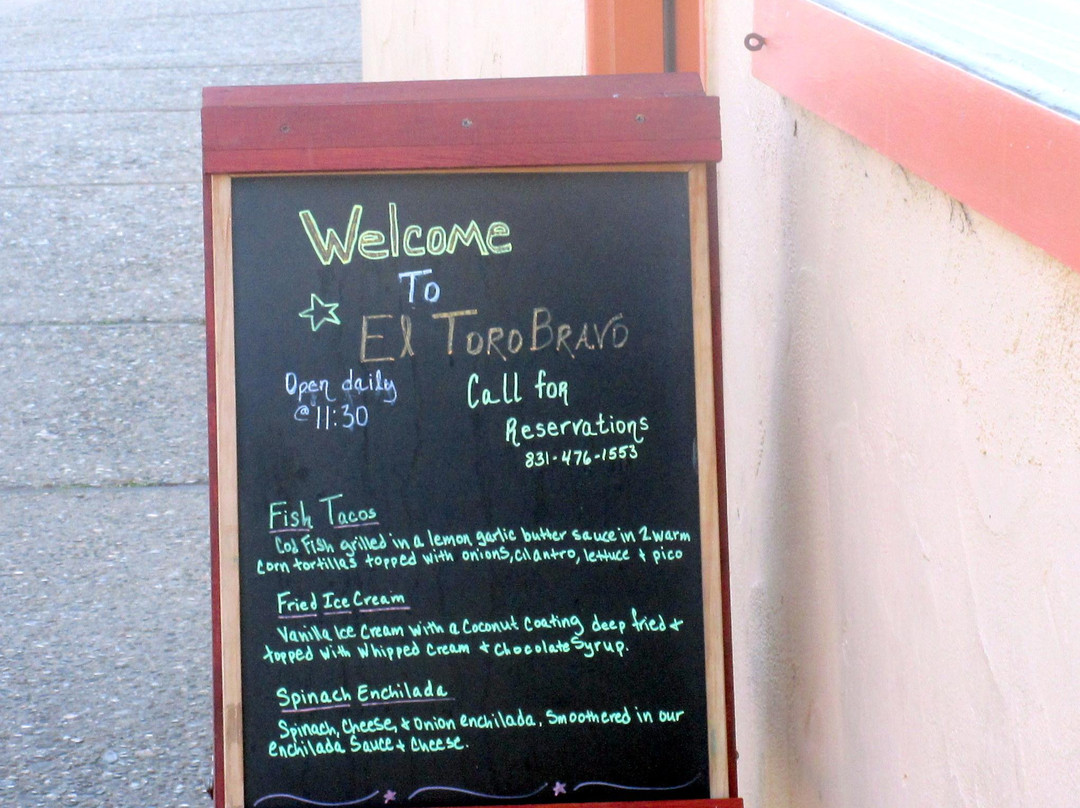 Welcome
To
El Toro Bravo
Open daily
@ 11:30
Call for
Reservations
831-476-1553
Fish Tacos
Cod Fish grilled in a lemon garlic butter sauce in 2 warm
corn tortillas topped with onions, cilantro, lettuce + pico
Fried Ice Cream
Vanilla Ice Cream with a Coconut Coating deep fried +
topped with Whipped Cream + Chocolate Syrup.
Spinach Enchilada
Spinach, Cheese, + Onion enchilada. Smoothered in our
enchilada Sauce + Cheese.